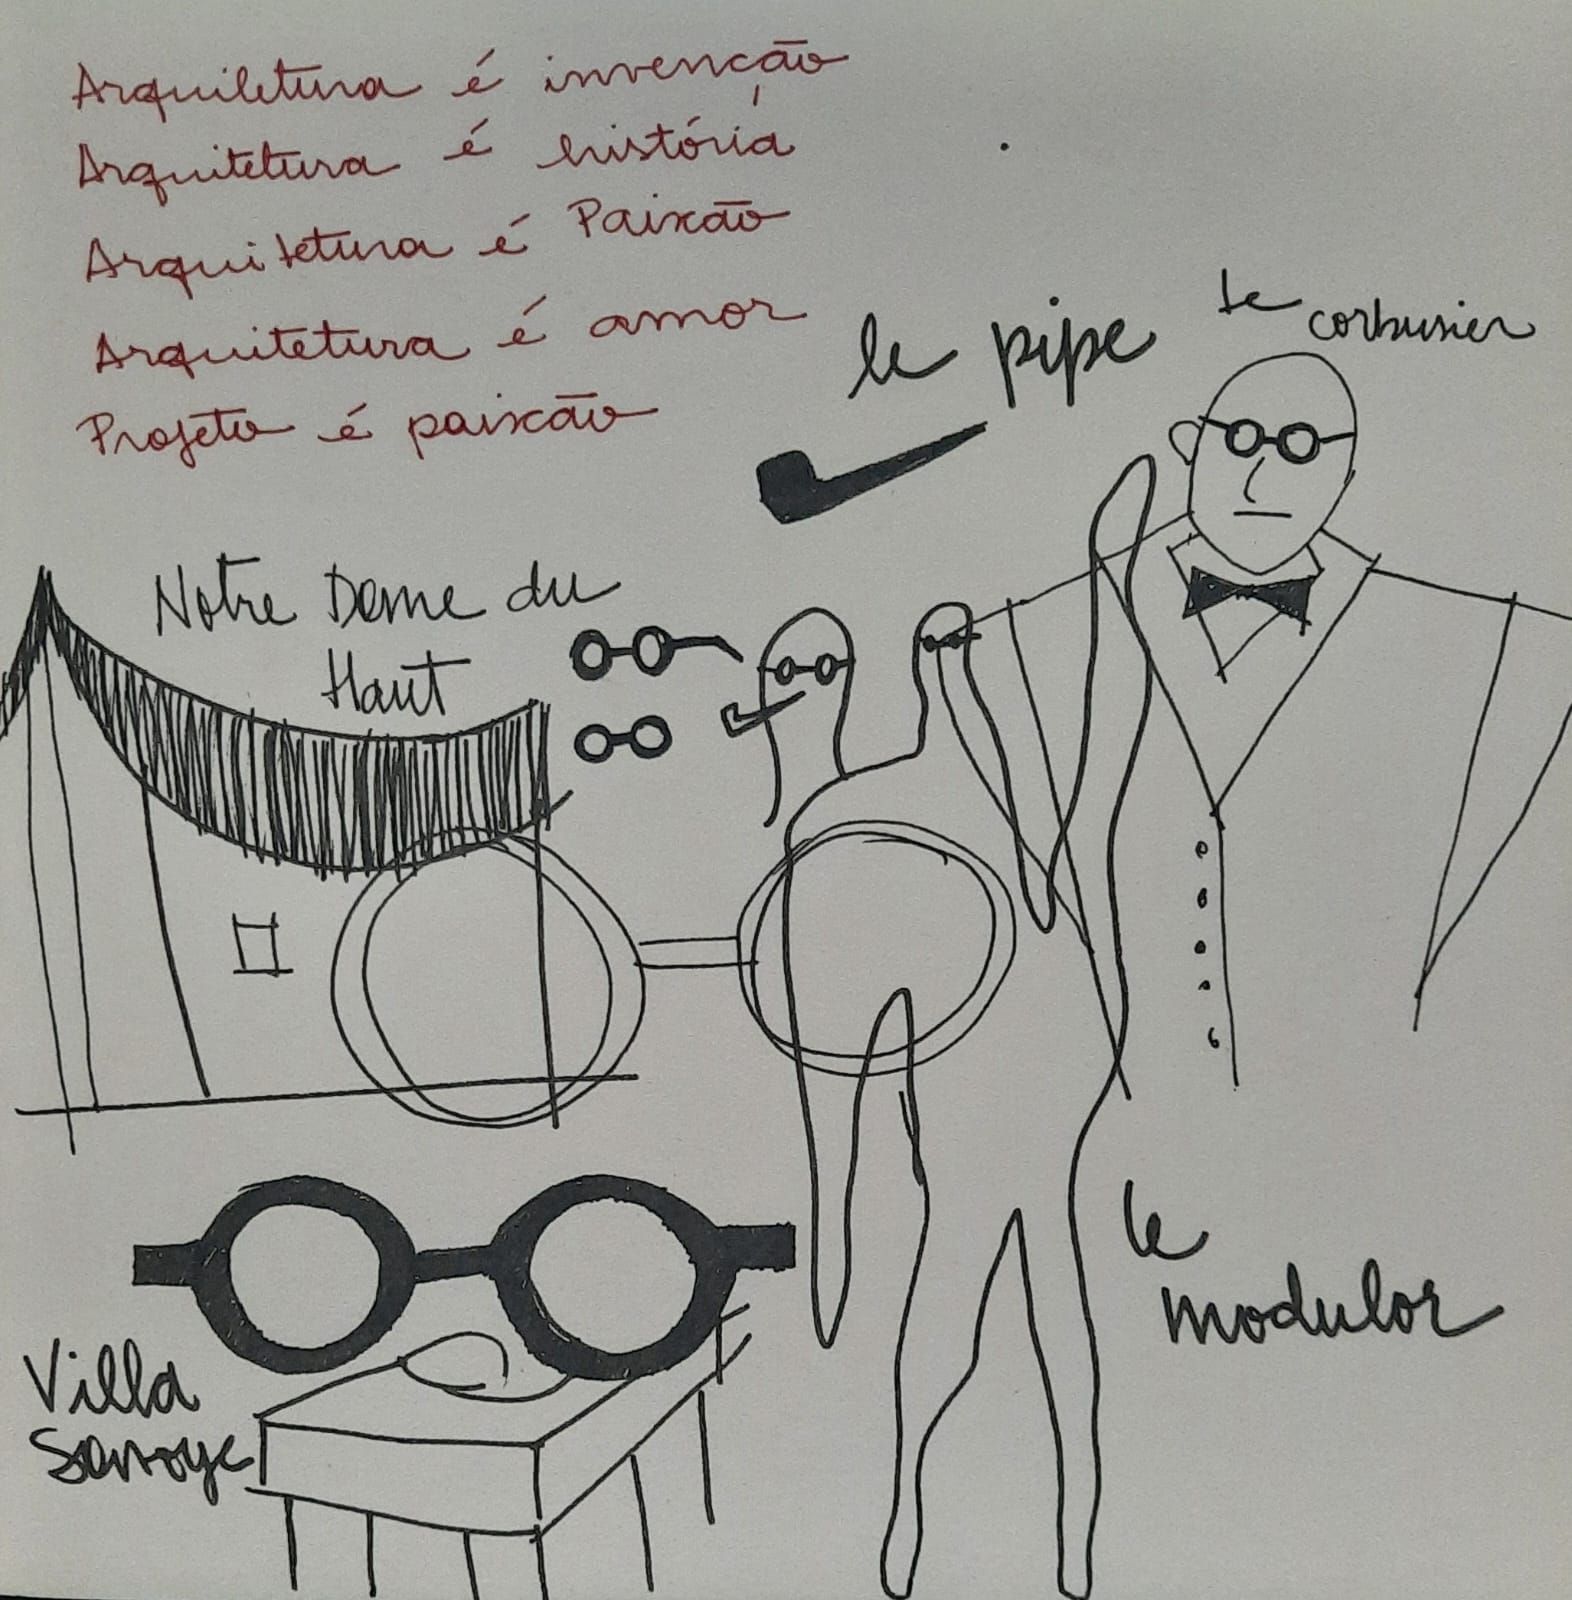 Arquitetura é invenção
Arquitetura é história
Arquitetura é Paixão
Arquitetura é amor
Projeto é paixão
le pipe
Le
corbusier
Notre Dame du
Haut
Villa
Savoye
le
modulor